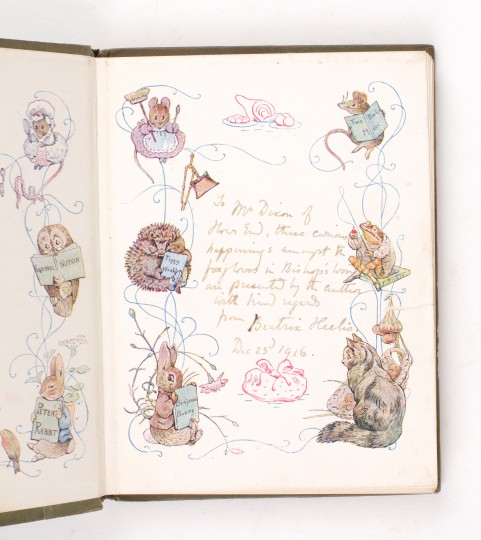 SQUIRREL NUTKIN
PETER
RABBIT
Two Bad
Mice
Tiggy
Winkle
Benjamin
Bunny
To Mr Dixon of
End, these curious
happenings amongst the
foxgloves in Bishop's Wood
are presented by the author
with kind regards
from Beatrix Heelis
Dec 23d 1916.